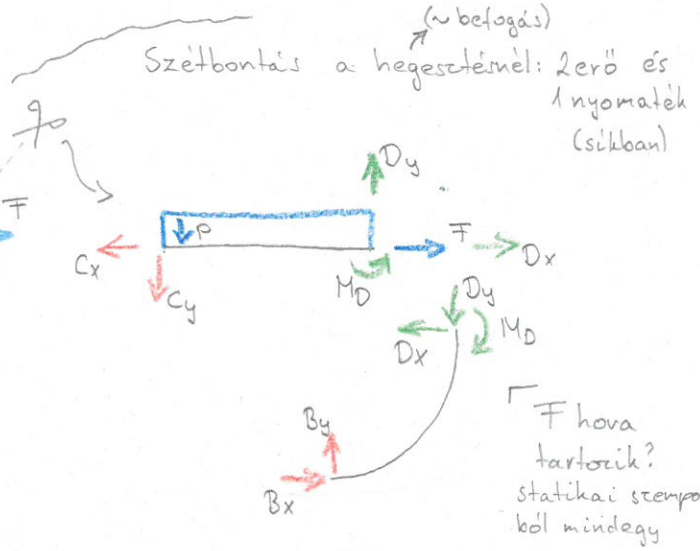 (~ befogás)
Szétbontás a hegesztésnél: 2 erő és
1 nyomaték
(síkban)
F
Dy
P
F
Dx
Cx
Cy
MD
Dy
MD
Dx
By
Bx
F hova
tartozik?
statikai szempo
ból mindegy